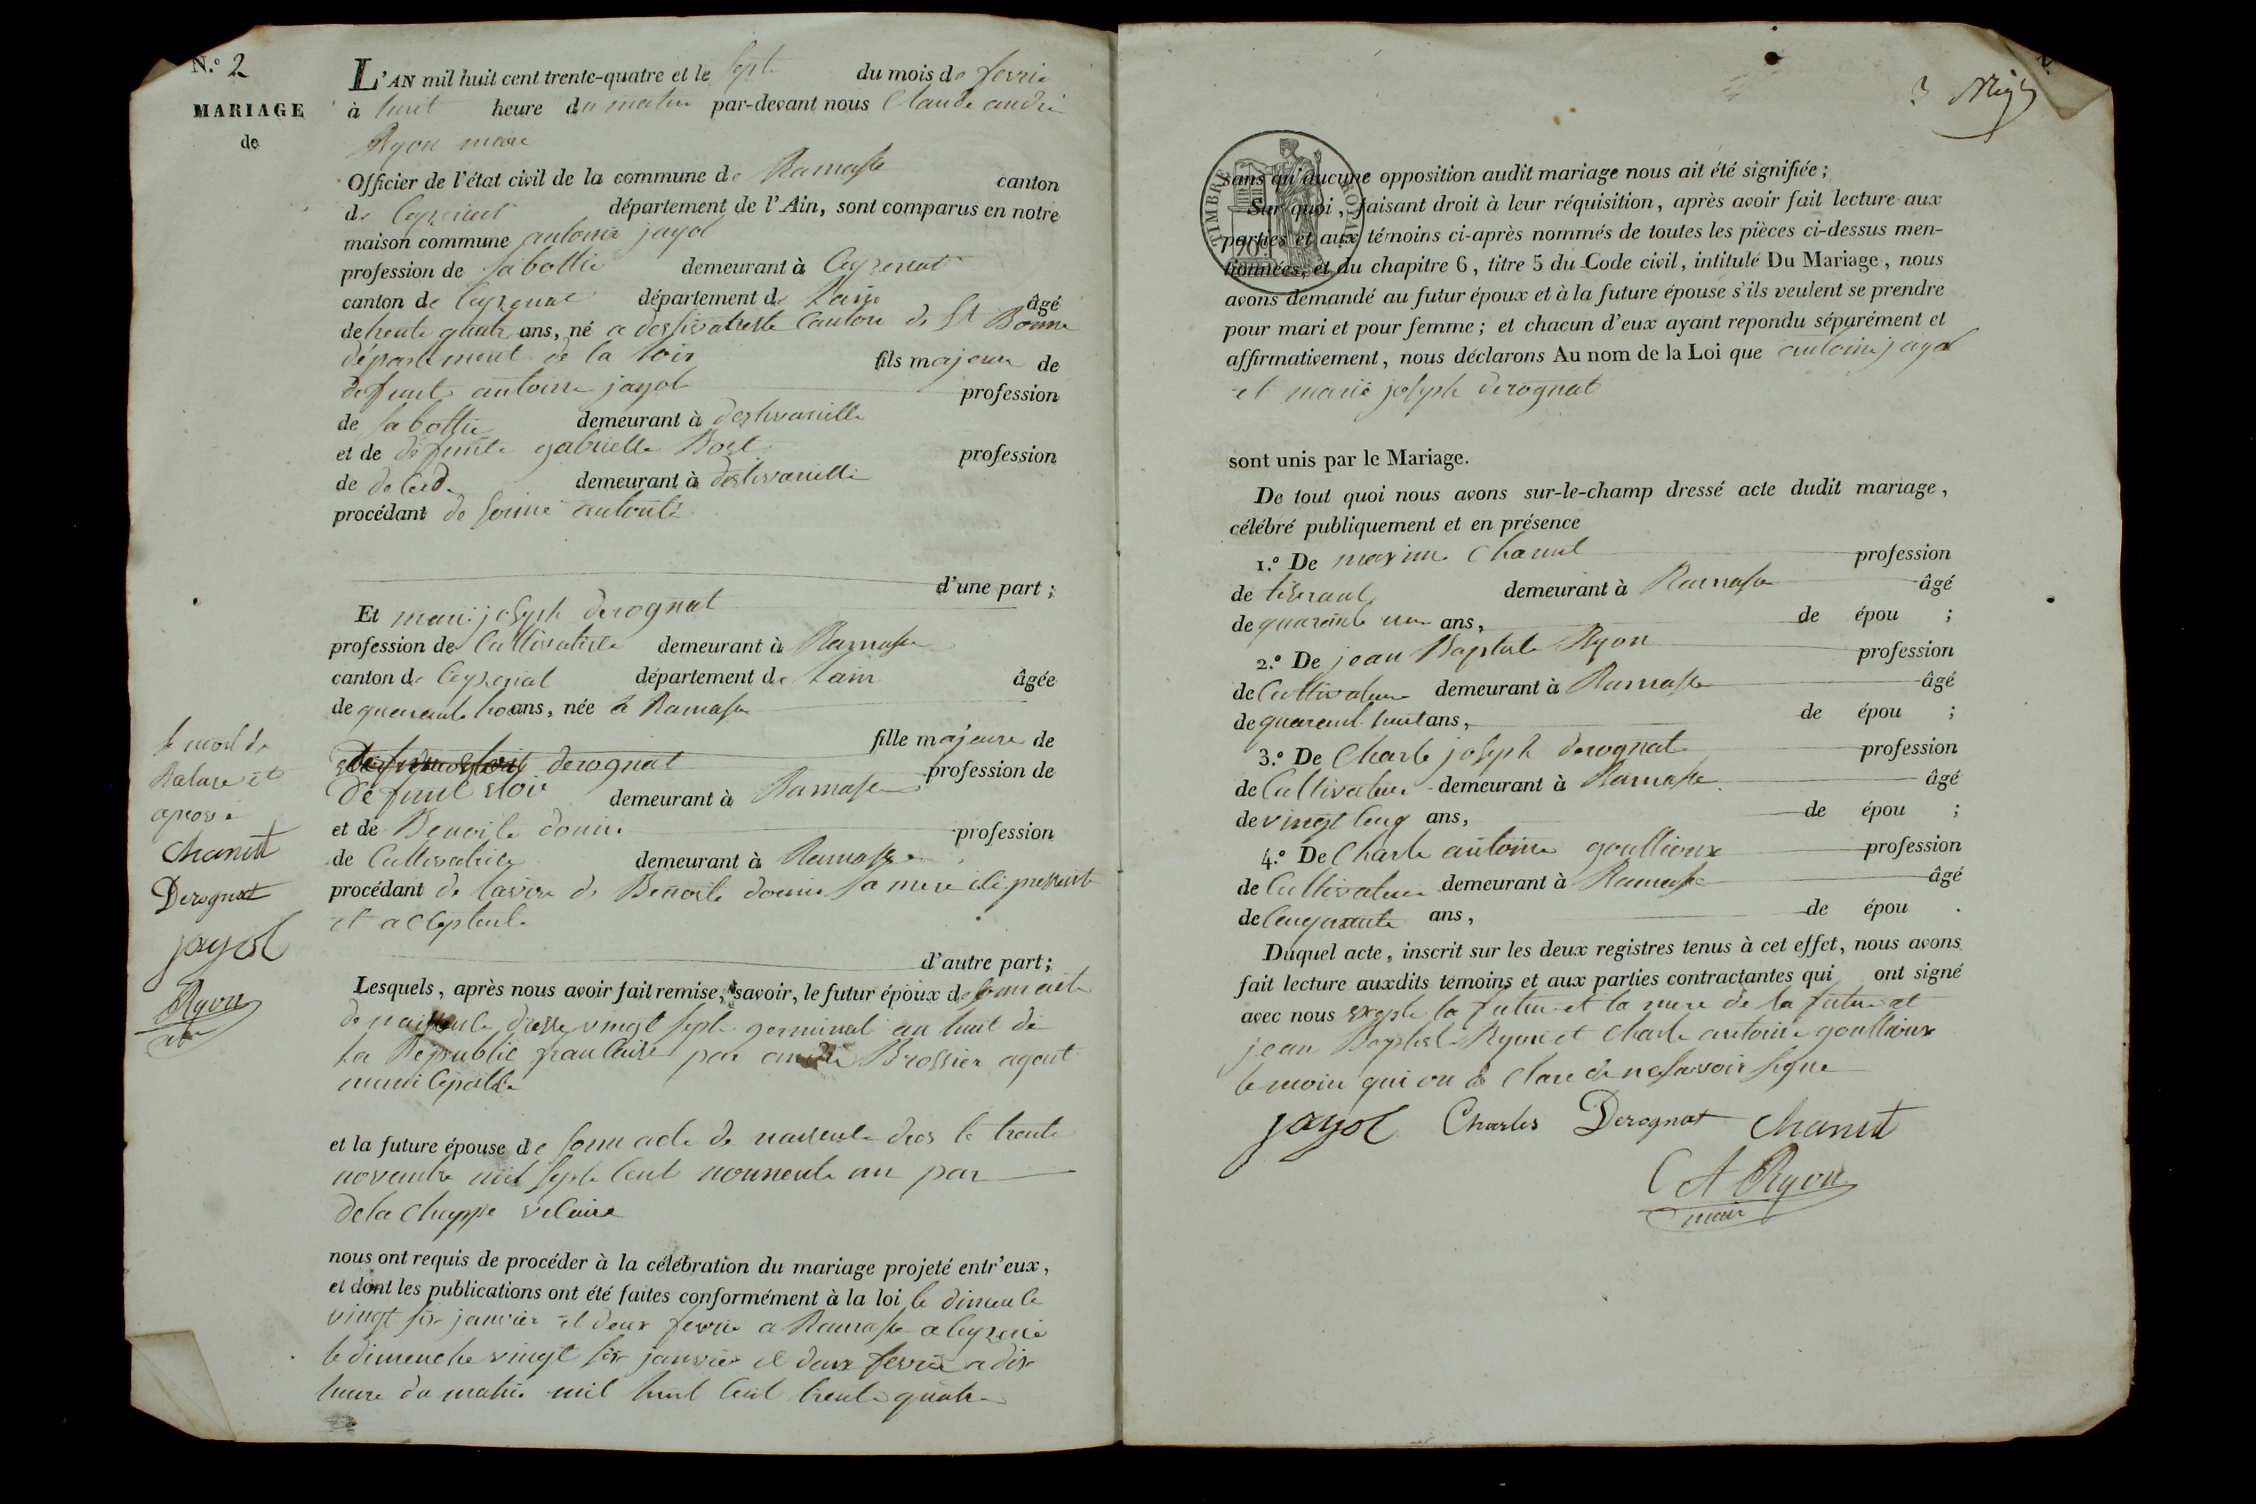 N.º 2
MARIAGE
de
L'AN mil huit cent trente-quatre et le sept du mois de fevrie
à huit heure du matin par-devant nous Claude andré
Ryon maire
Officier de l'état civil de la commune de Ramasse canton
de Ceyzeriat département de l'Ain, sont comparus en notre
maison commune antoine jayol
profession de sabottie demeurant à Ceyzeriat
canton de Ceyzeriat département de Lain âgé
de trente quatre ans, né a canton de St Bonne
département de la loir fils majeure de
defunt antoine jayol profession
de sabottie demeurant à
et de défunte gabrielle profession
de demeurant à
procédant de
d'une part ;
Et marie joseph derognat
profession de Cultivatrice demeurant à Ramasse
canton de Ceyzeriat département de Lain âgée
de quarante ans, née à Ramasse
fille majeure de
derognat profession de
défunt demeurant à Ramasse
et de Benoite profession
de Cultivatrice demeurant à Ramasse
procédant de lavis de Benoite sa mere ici presente
et acceptente
d'autre part ;
Lesquels, après nous avoir fait remise, savoir, le futur époux de sonn acte
de naissence dresse vingt sept germinal an huit de
la Republic francaise par andré Brossier agent
municipalle
et la future épouse de sonn acte de naissence dres le trente
novembre mil sept cent nonnente un par
delachappe vicaire
nous ont requis de procéder à la célébration du mariage projeté entr'eux,
et dont les publications ont été faites conformément à la loi le
vingt six janvier et deux fevrie a Ramasse a
le dimenche vingt six janvier et deux fevrie a dix
heure du matin mil huit cent trente quatre
le most de
Rature et
aprové
chanut
Derognat
jayol
Ryon
sans qu'aucune opposition audit mariage nous ait été signifiée ;
Sur quoi, faisant droit à leur réquisition, après avoir fait lecture aux
parties et aux témoins ci-après nommés de toutes les pièces ci-dessus men-
tionnées, et du chapitre 6, titre 5 du Code civil, intitulé Du Mariage, nous
avons demandé au futur époux et à la future épouse s'ils veulent se prendre
pour mari et pour femme ; et chacun d'eux ayant repondu séparément et
affirmativement, nous déclarons Au nom de la Loi que antoine jayol
et marie joseph derognat
TIMBRE ROYAL
sont unis par le Mariage.
De tout quoi nous avons sur-le-champ dressé acte dudit mariage,
célébré publiquement et en présence
1.º De maxime Chanut profession
de tiserant demeurant à Ramasse âgé
de quarente un ans, de épou ;
2.º De jean Baptiste Ryon profession
de Cultivateur demeurant à Ramasse âgé
de quarent huit ans, de épou ;
3.º De Charle joseph derognat profession
de Cultivateur demeurant à Ramasse âgé
de vingt cinq ans, de épou ;
4.º De Charle antoine goullioux profession
de Cultivateur demeurant à Ramasse âgé
de cinquante ans, de épou .
Duquel acte, inscrit sur les deux registres tenus à cet effet, nous avons
fait lecture auxdits témoins et aux parties contractantes qui ont signé
avec nous exepte la future et la mere de la future et
jean Baptist Ryon et Charle antoine goullioux
temoin qui on de clare de ne savoir signe
jayol Charles Derognat chanut
C A Ryon
mair